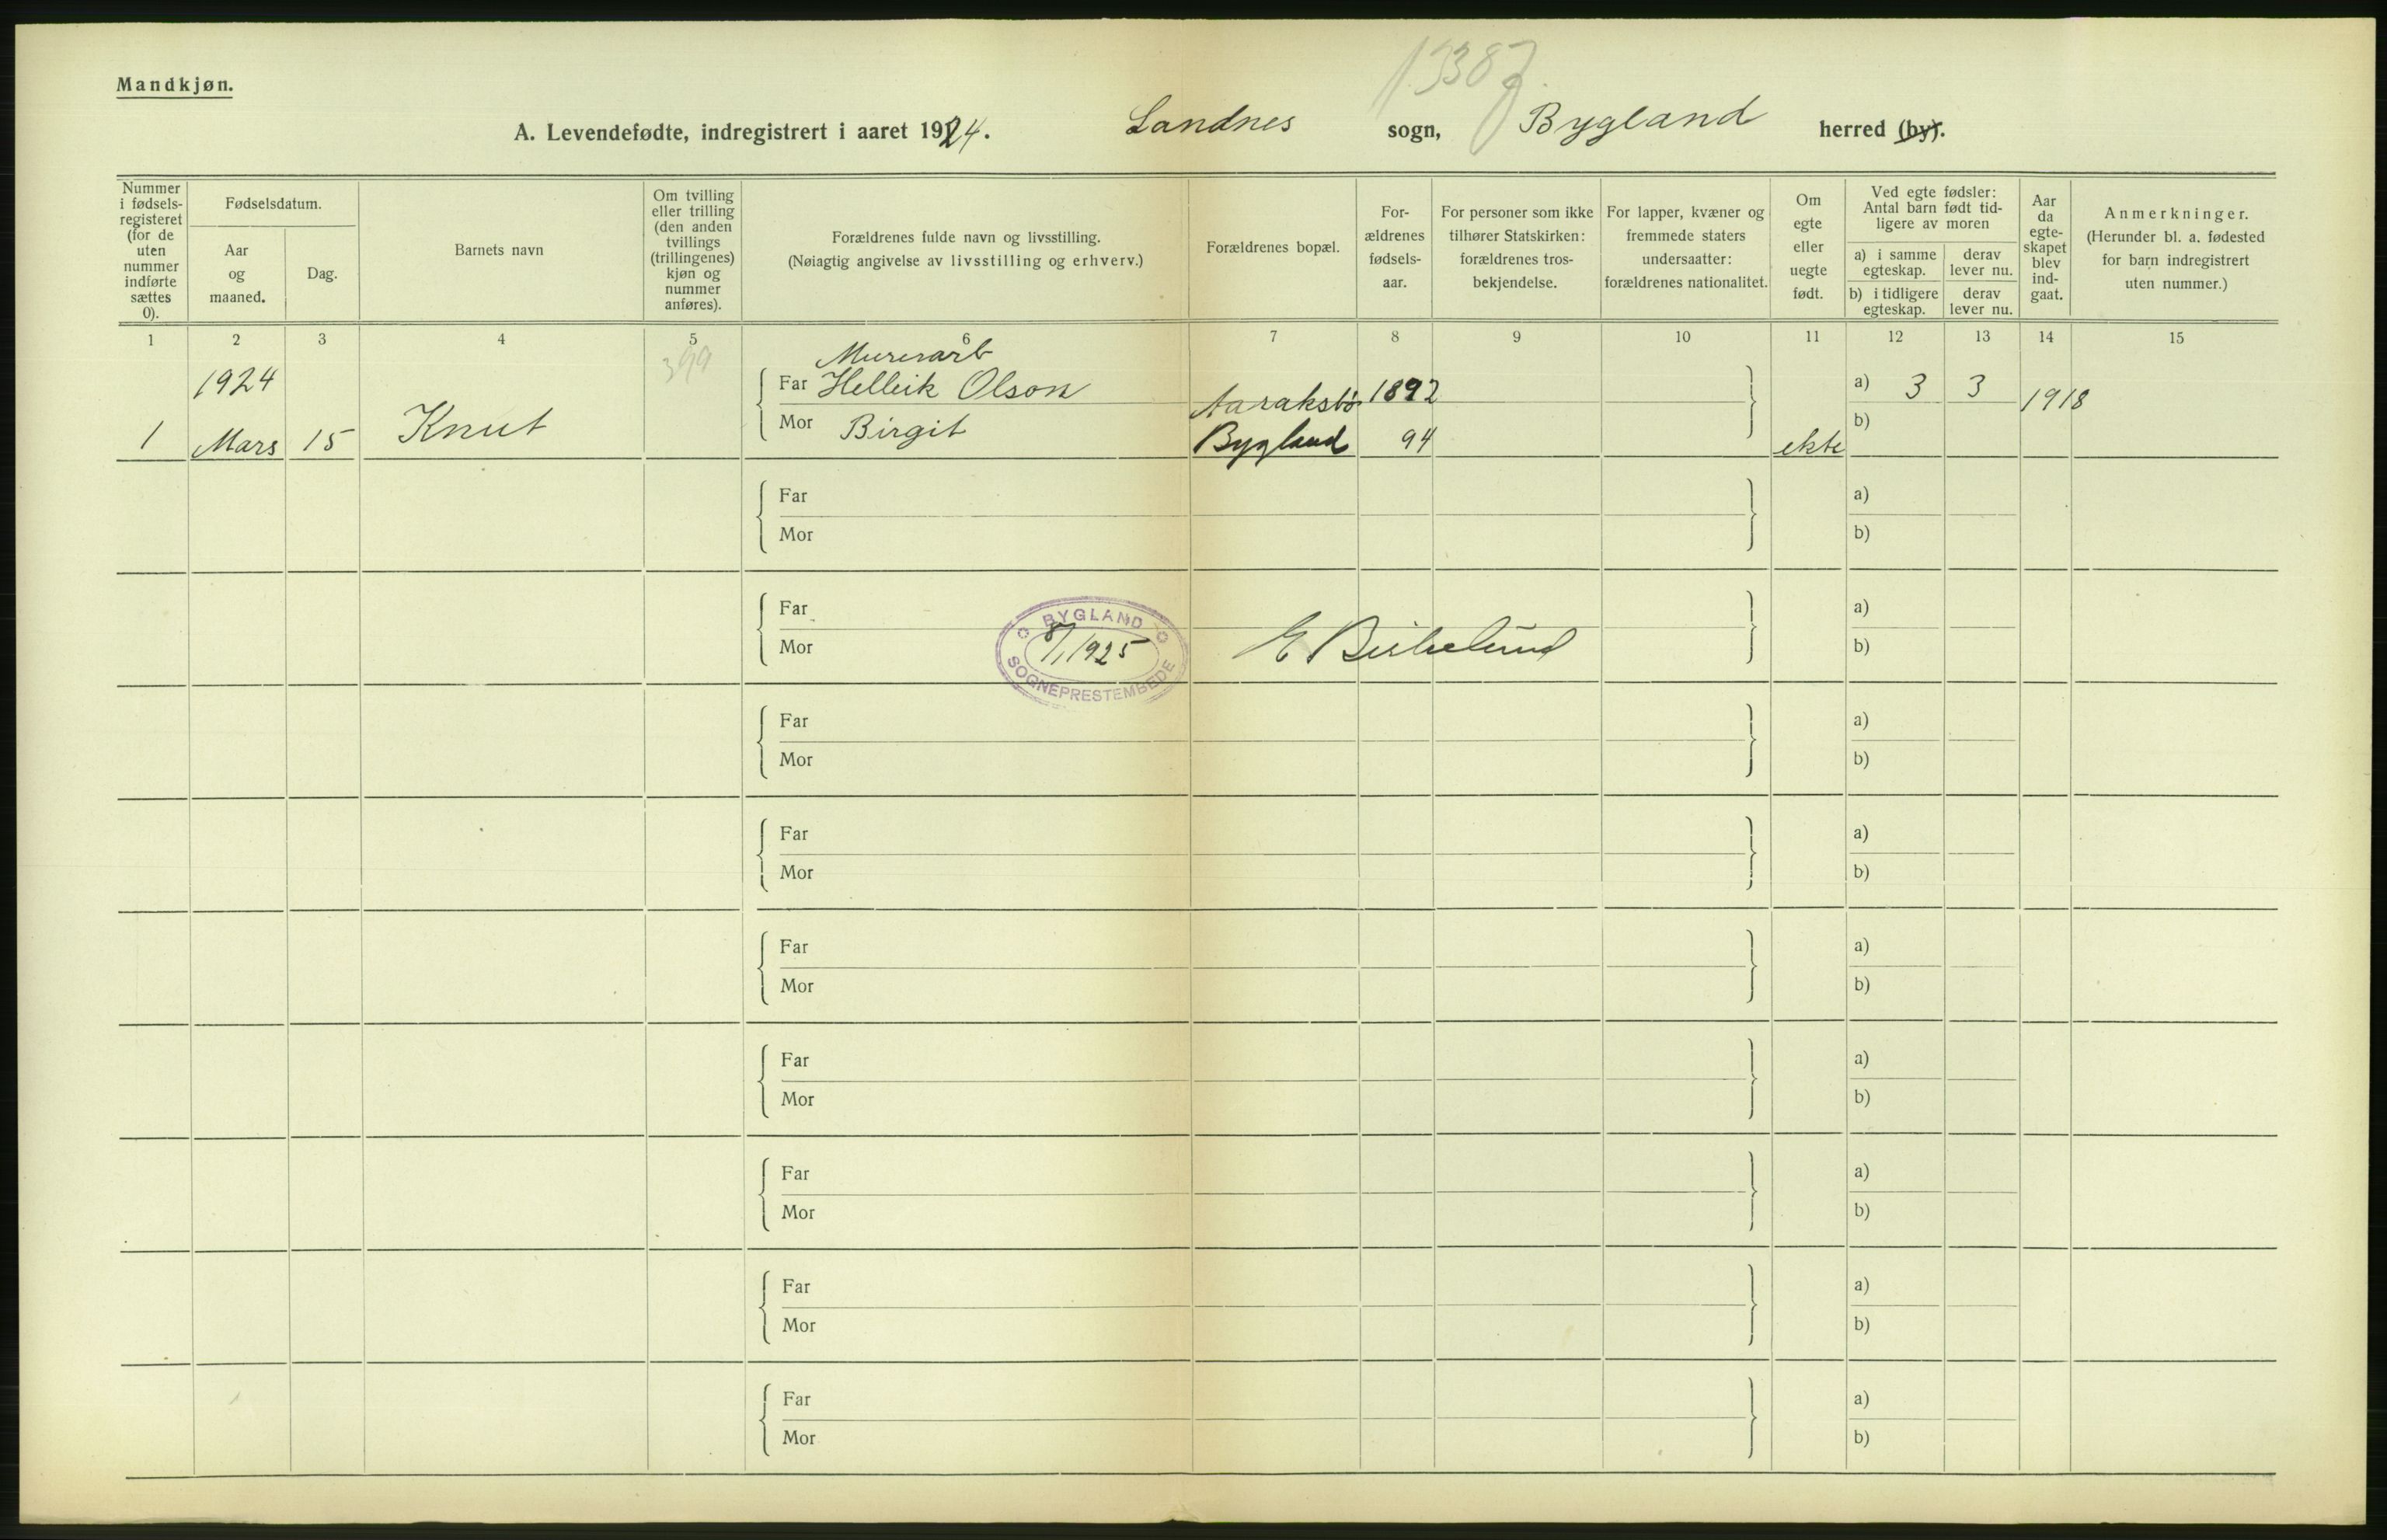 Mandkjøn.
1338
A. Levendefødte, indregistrert i aaret 1924. Sandnes sogn, Bygland herred (by).
Nummer i fødsels-registeret (for de uten nummer indførte sættes 0).
Fødselsdatum.
Aar og maaned.
Dag.
Barnets navn
Om tvilling eller trilling (den anden tvillings (trillingenes) kjøn og nummer anføres).
Forældrenes fulde navn og livsstilling.
(Nøiagtig angivelse av livsstilling og erhverv.)
Forældrenes bopæl.
For-ældrenes fødsels-aar.
For personer som ikke tilhører Statskirken: forældrenes tros-bekjendelse.
For lapper, kvæner og fremmede staters undersaatter: forældrenes nationalitet.
Om egte eller uegte født.
Ved egte fødsler: Antal barn født tid-ligere av moren
a) i samme egteskap.
derav lever nu.
b) i tidligere egteskap.
derav lever nu.
Aar da egte-skapet blev ind-gaat.
Anmerkninger.
(Herunder bl. a. fødested for barn indregistrert uten nummer.)
1 2 3 4 5 6 7 8 9 10 11 12 13 14 15
399
Murerarb
1924 Far Helleik Olson Aaraksbø 1892 a) 3 3 1918
1 Mars 15 Knut Mor Birgit Bygland 94 ekte b)
Far a)
Mor b)
Far a)
Mor b)
BYGLAND
8/1 1925
SOGNEPRESTEMBEDE
E Birkelund
Far a)
Mor b)
Far a)
Mor b)
Far a)
Mor b)
Far a)
Mor b)
Far a)
Mor b)
Far a)
Mor b)
Far a)
Mor b)